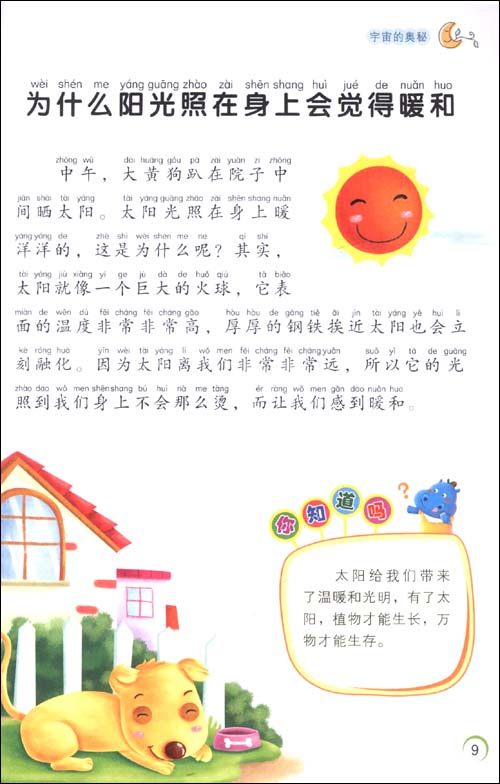 宇宙的奥秘
wèi shén me yáng guāng zhào zài shēn shang huì jué de nuǎn huo
为什么阳光照在身上会觉得暖和
zhōng wǔ dài huáng gǒu pā zài yuàn zi zhōng
中午，大黄狗趴在院子中
jiān shài tài yáng tài yáng guāng zhào zài shēn shang nuǎn
间晒太阳。太阳光照在身上暖
yáng yáng de zhè shì wèi shén me ne qí shí
洋洋的，这是为什么呢？其实，
tài yáng jiù xiàng yí ge jù dà de huǒ qiú tā biǎo
太阳就像一个巨大的火球，它表
miàn de wēn dù fēi cháng fēi cháng gāo hòu hòu de gāng tiě āi jìn tài yáng yě huì lì
面的温度非常非常高，厚厚的钢铁挨近太阳也会立
kè róng huà yīn wèi tài yáng lí wǒ men fēi cháng fēi cháng yuǎn suǒ yǐ tā de guāng
刻融化。因为太阳离我们非常非常远，所以它的光
zhào dào wǒ men shēn shang bú huì nà me tàng ér ràng wǒ men gǎn dào nuǎn huo
照到我们身上不会那么烫，而让我们感到暖和。
你知道吗
?
太阳给我们带来
了温暖和光明，有了太
阳，植物才能生长，万
物才能生存。
9